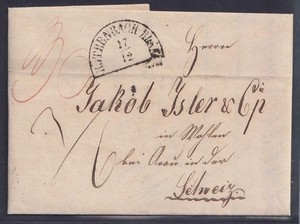 17
12
Herrn
Jakob Isler & Cie
in Wohlen
bei Arau in der
Schweiz